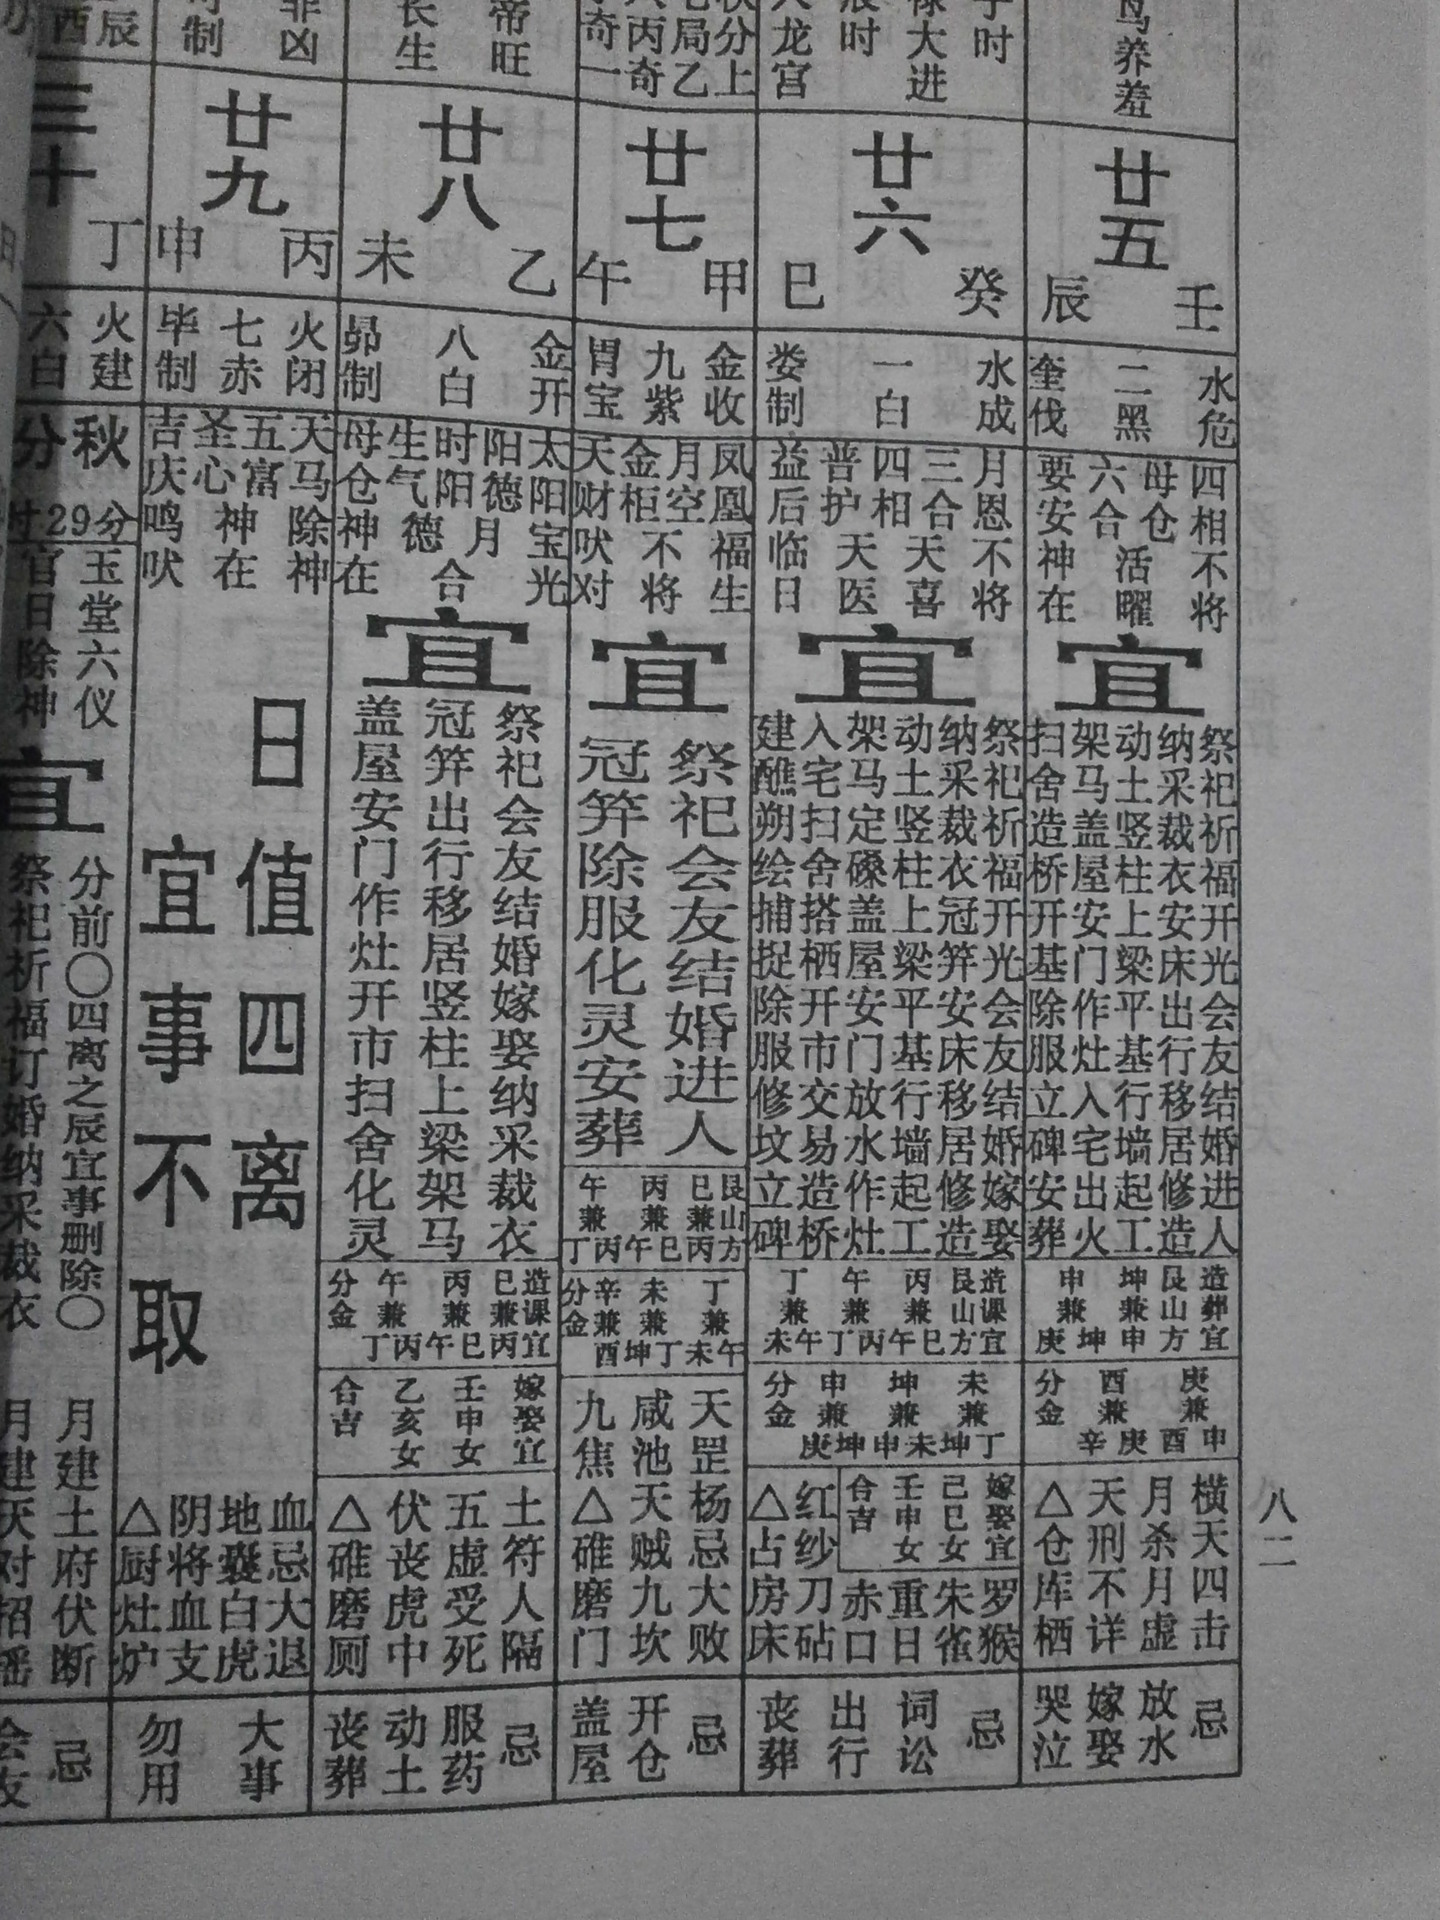 鸟养羞
廿五
壬辰
水危
二黑
奎伐
四相不将
母仓
六合活曜
要安神在
宜
祭祀祈福开光会友结婚进人
纳采裁衣安床出行移居修造
动土竖柱上梁平基行墙起工
架马盖屋安门作灶入宅出火
扫舍造桥开基除服立碑安葬
造葬宜
艮山方
坤兼申
申兼庚坤
庚兼申
酉兼庚辛
分金
横天四击
月杀月虚
天刑不详
△仓库栖
忌
放水
嫁娶
哭泣
子时
禄大进
辰时
龙宫
廿六
癸巳
水成
一白
娄制
月恩不将
三合天喜
四相
普护天医
益后临日
宜
祭祀祈福开光会友结婚嫁娶
纳采裁衣冠笄安床移居修造
动土竖柱上梁平基行墙起工
架马定磉盖屋安门放水作灶
入宅扫舍搭栖开市交易造桥
建醮朔绘捕捉除服修坟立碑
造课宜
艮山方
丙兼午巳
午兼丁丙
丁兼未午
未兼坤丁
坤兼申未
申兼庚坤
分金
嫁娶宜
己巳女
壬申女
合吉
罗猴
朱雀
重日
赤口
红纱刀砧
△占房床
忌
词讼
出行
丧葬
秋分上
局乙
丙奇
奇一
廿七
甲午
金收
九紫
胃宝
凤凰福生
月空
金柜不将
天财吠对
宜
祭祀会友结婚进人
冠笄除服化灵安葬
艮山方
巳兼丙
丙兼午巳
午兼丁丙
丁兼未午
未兼坤丁
辛兼酉
分金
天罡杨忌大败
咸池天贼九坎
九焦△碓磨门
忌
开仓
盖屋
帝旺
长生
廿八
乙未
金开
八白
昴制
太阳宝光
阳德月合
时阳
生气德
母仓神在
宜
祭祀会友结婚嫁娶纳采裁衣
冠笄出行移居竖柱上梁架马
盖屋安门作灶开市扫舍化灵
造课宜
巳兼丙
丙兼午巳
午兼丁丙
分金
嫁娶宜
壬申女
乙亥女
合吉
土符人隔
五虚受死
伏丧虎中
△碓磨厕
忌
服药
动土
丧葬
非凶
制
廿九
丙申
火闭
七赤
毕制
天马除神
五富
圣心神在
吉庆鸣吠
日值四离
宜事不取
血忌大退
地囊白虎
阴将血支
△厨灶炉
大事
勿用
辰
酉
三十
丁
火建
六白
秋分
29分
玉堂六仪
官日除神
宜
分前〇四离之辰宜事删除〇
祭祀祈福订婚纳采裁衣
月建土府伏断
月建天对招摇
忌
会友
八二